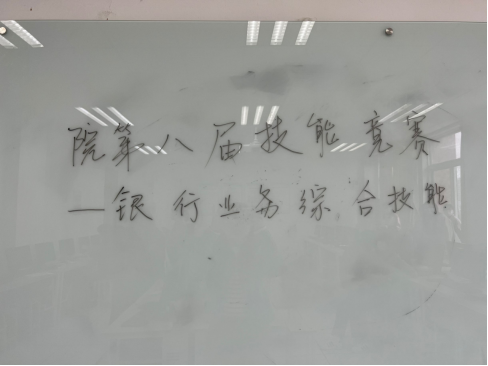 院第八届技能竞赛
—银行业务综合技能